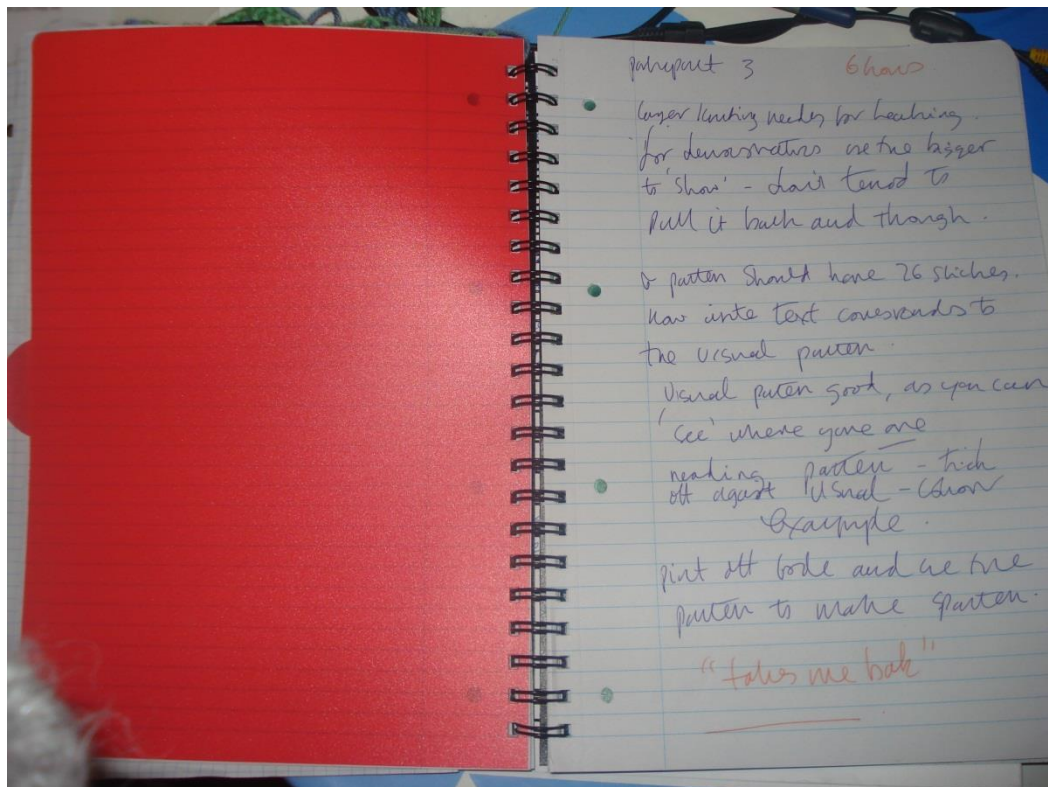 3 6 hours
larger knitting needles for teaching.
for use the bigger
to 'show' - tend to
pull it back and though.
patten should have 26 stiches.
how text coresponds to
the visual patten.
visual paten good, as you can
'see' where you are
reading patten - tick
off against visual - (show
example.
pint off code and use the
patten to make patten.
"takes me back"